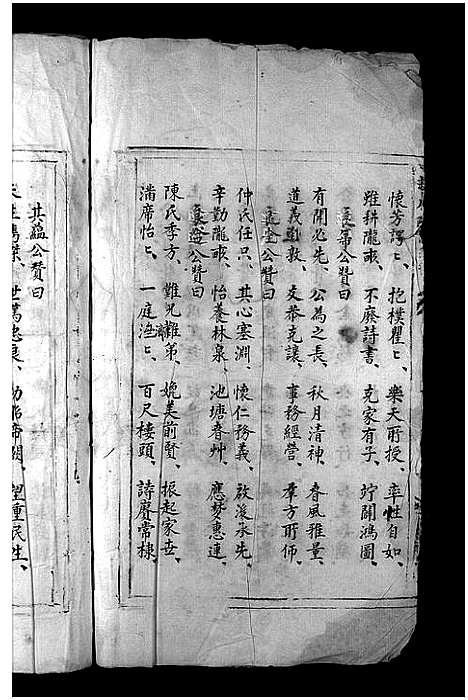 懷芳諤々、抱樸瞿々、樂天所授、率性自如、
雖耕隴畝、不廢詩書、克家有子、竚開鴻圖、
公贊曰
有開必先、公為之長、秋月清神、春風雅量、
道義政教、文恭克讓、事務經營、羣方所師、
公贊曰
仲氏任只、其心塞淵、懷仁務義、啟後承先、
辛勤隴畝、怡養林泉、池塘春艸、應夢惠連、
公贊曰
陳氏季方、難兄難弟、媲美前賢、振起家世、
滿席怡々、一庭洩々、百尺樓頭、詩賡常棣、
其蘊公贊曰
世篤忠良、望重民生、